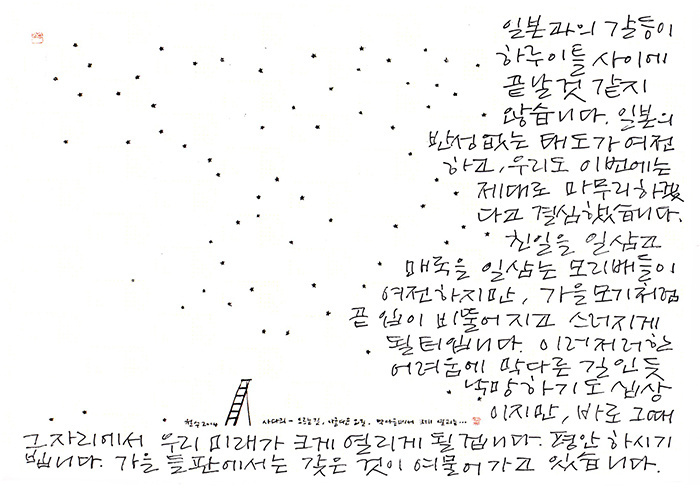 일본과의 갈등이
하루이틀 사이에
끝날것 같지
않습니다. 일본의
반성없는 태도가 여전
하고, 우리도 이번에는
제대로 마무리하겠
다고 결심했습니다.
친일을 일삼고
매국을 일삼는 모리배들이
여전하지만, 가을모기처럼
끝 입이 비뚤어지고 스러지게
될터입니다. 이러저러한
어려움에 막다른 길인듯
낙망하기도 쉽상
이지만, 바로 그때
철수2014 사다리 -
그 자리에서 우리 미래가 크게 열리게 될겁니다. 평안하시기
빕니다. 가을 들판에서는 갖은 것이 여물어가고 있습니다.